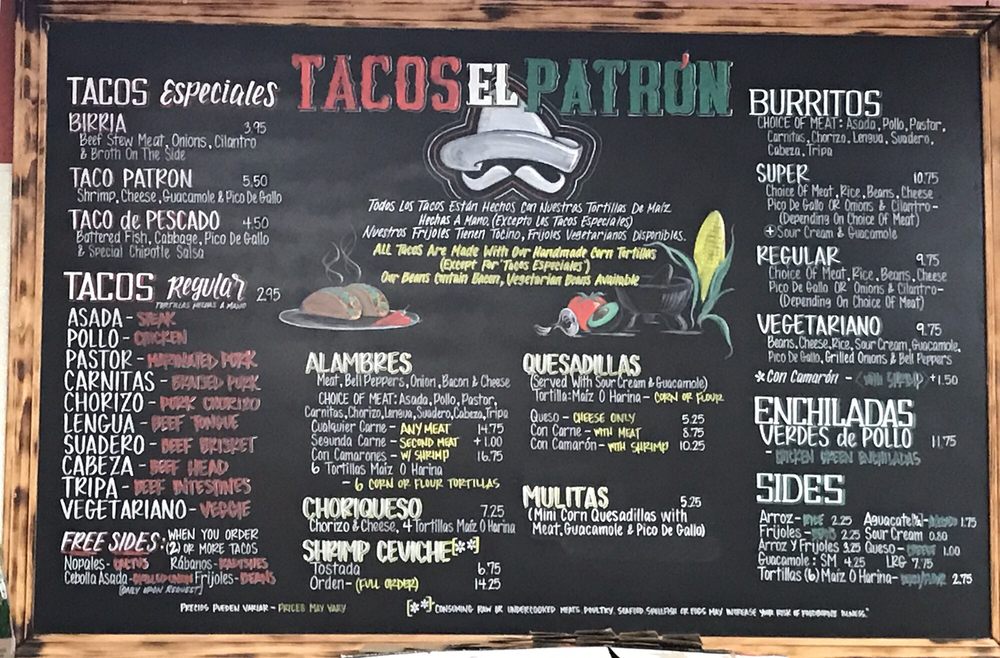 TACOS EL PATRÓN
TACOS Especiales
BIRRIA 3.95
Beef Stew Meat, Onions, Cilantro
& Broth On The Side
TACO PATRON 5.50
Shrimp, Cheese, Guacamole & Pico De Gallo
TACO de PESCADO 4.50
Battered Fish, Cabbage, Pico De Gallo
& Special Chipotle Salsa
TACOS Regular 2.95
TORTILLAS HECHAS A MANO
ASADA - STEAK
POLLO - CHICKEN
PASTOR - MARINATED PORK
CARNITAS - BRAISED PORK
CHORIZO - PORK CHORIZO
LENGUA - BEEF TONGUE
SUADERO - BEEF BRISKET
CABEZA - BEEF HEAD
TRIPA - BEEF INTESTINES
VEGETARIANO - VEGGIE
FREE SIDES: WHEN YOU ORDER
(2) OR MORE TACOS
Nopales - CACTUS Rábanos - RADISHES
Cebolla Asada - GRILLED ONION Frijoles - BEANS
[ONLY UPON REQUEST]
PRECIOS PUEDEN VARIAR - PRICES MAY VARY
Todos Los Tacos Están Hechos Con Nuestras Tortillas De Maíz
Hechas A Mano. (Excepto Los Tacos Especiales)
Nuestros Frijoles Tienen Tocino, Frijoles Vegetarianos Disponibles.
ALL Tacos Are Made With Our Handmade Corn Tortillas
(Except For "Tacos Especiales")
Our Beans Contain Bacon, Vegetarian Beans Available
ALAMBRES
Meat, Bell Peppers, Onion, Bacon & Cheese
CHOICE OF MEAT: Asada, Pollo, Pastor,
Carnitas, Chorizo, Lengua, Suadero, Cabeza, Tripa
Cualquier Carne - ANY MEAT 14.75
Segunda Carne - SECOND MEAT +1.00
Con Camarones - W/ SHRIMP 16.75
6 Tortillas Maíz O Harina
- 6 CORN OR FLOUR TORTILLAS
CHORIQUESO 7.25
Chorizo & Cheese, 4 Tortillas Maíz O Harina
SHRIMP CEVICHE [**]
Tostada 6.75
Orden - (FULL ORDER) 14.25
QUESADILLAS
(Served With Sour Cream & Guacamole)
Tortilla: Maíz O Harina - CORN OR FLOUR
Queso - CHEESE ONLY 5.25
Con Carne - WITH MEAT 8.75
Con Camarón - WITH SHRIMP 10.25
MULITAS 5.25
(Mini Corn Quesadillas with
Meat, Guacamole & Pico De Gallo)
BURRITOS
CHOICE OF MEAT: Asada, Pollo, Pastor,
Carnitas, Chorizo, Lengua, Suadero,
Cabeza, Tripa
SUPER 10.75
Choice Of Meat, Rice, Beans, Cheese
Pico De Gallo OR Onions & Cilantro -
(Depending On Choice Of Meat)
+ Sour Cream & Guacamole
REGULAR 9.75
Choice Of Meat, Rice, Beans, Cheese
Pico De Gallo OR Onions & Cilantro -
(Depending On Choice Of Meat)
VEGETARIANO 9.75
Beans, Cheese, Rice, Sour Cream, Guacamole,
Pico De Gallo, Grilled Onions & Bell Peppers
*Con Camarón - (WITH SHRIMP) +1.50
ENCHILADAS
VERDES de POLLO 11.75
- CHICKEN GREEN ENCHILADAS
SIDES
Arroz - RICE 2.25 Aguacate 1.75
Frijoles - BEANS 2.25 Sour Cream 0.80
Arroz Y Frijoles 3.25 Queso - CHEESE 1.00
Guacamole: SM 4.25 LRG 7.75
Tortillas (6) Maíz O Harina - 2.75
[**] CONSUMING RAW OR UNDERCOOKED MEATS, POULTRY, SEAFOOD, SHELLFISH OR EGGS MAY INCREASE YOUR RISK OF FOODBORNE ILLNESS."